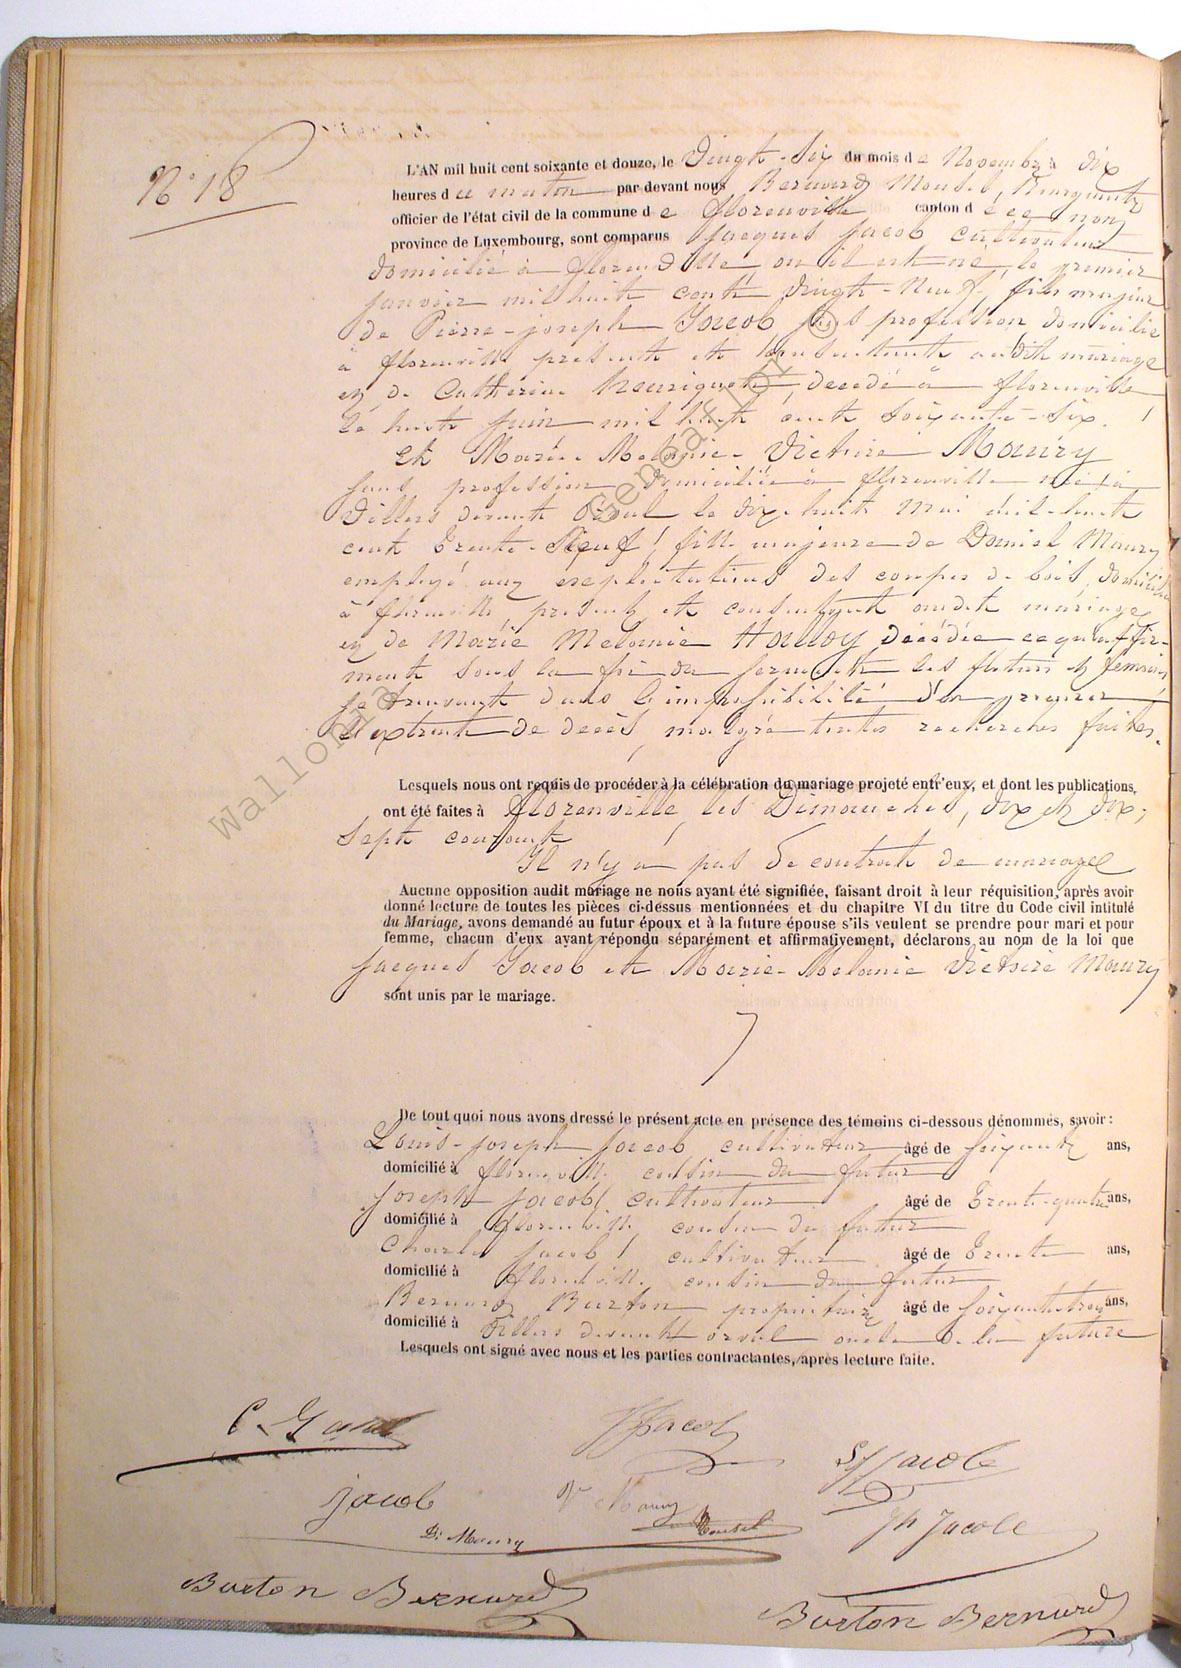 N° 18
L'AN mil huit cent soixante et douze, le Vingt-Six du mois de Novembre à dix
heures du matin par devant nous Bernard Mousel, Bourgmestre
officier de l'état civil de la commune de Florenville canton d ce nom
province de Luxembourg, sont comparus Jacques Jacob, cultivateur
domicilié à Florenville, où il est né, le premier
janvier mil huit cent Vingt-Neuf, fils majeur
de Pierre-joseph Jacob sans profession, domicilié
à florenville présent et consentant audit mariage
et de Catherine Henriquet, décédé à florenville
le huit juin mil huit cent soixante-six.
Et Marie-Melanie-Victoire Maury
sans profession domiciliée à florenville née à
Villers devant Orval le dix huit Mai mil-huit
cent Trente-Neuf, fille majeure de Daniel Maury
employé aux exploitations des coupes de bois, domicilié
à florenville présent et consentant audit mariage
et de Marie Melanie Hautoy, Décédée ce qu'affir-
ment sous la foi du serment les futurs et temoins
se trouvant dans l'impossibilité d'en
l'extrait de décès, malgré toutes recherches faites.
Lesquels nous ont requis de procéder à la célébration du mariage projeté entr'eux, et dont les publications
ont été faites à Florenville, les Dimanches, dix et dix-
sept courant
Il n'y a pas de contrat de mariage
Aucune opposition audit mariage ne nous ayant été signifiée, faisant droit à leur réquisition, après avoir
donné lecture de toutes les pièces ci-dessus mentionnées et du chapitre VI du titre du Code civil intitulé
du Mariage, avons demandé au futur époux et à la future épouse s'ils veulent se prendre pour mari et pour
femme, chacun d'eux ayant répondu séparément et affirmativement, déclarons au nom de la loi que
Jacques Jacob et Marie-Melanie Victoire Maury
sont unis par le mariage.
De tout quoi nous avons dressé le présent acte en présence des témoins ci-dessous dénommés, savoir :
Louis-joseph Jacob cultivateur âgé de soixante ans,
domicilié à florenville cousin du futur
Joseph Jacob, cultivateur âgé de Trente-quatre ans,
domicilié à florenville cousin du futur
Charles Jacob, cultivateur âgé de Trente ans,
domicilié à florenville cousin du futur
Bernard Burton propriétaire âgé de soixante trois ans,
domicilié à Villers devant orval oncle de la future
Lesquels ont signé avec nous et les parties contractantes, après lecture faite.
PJJacob
LJ Jacob
Jacob
V Maury
Mousel
Jh Jacob
D. Maury
Burton Bernard
Burton Bernard
Wallonia Genealor ©